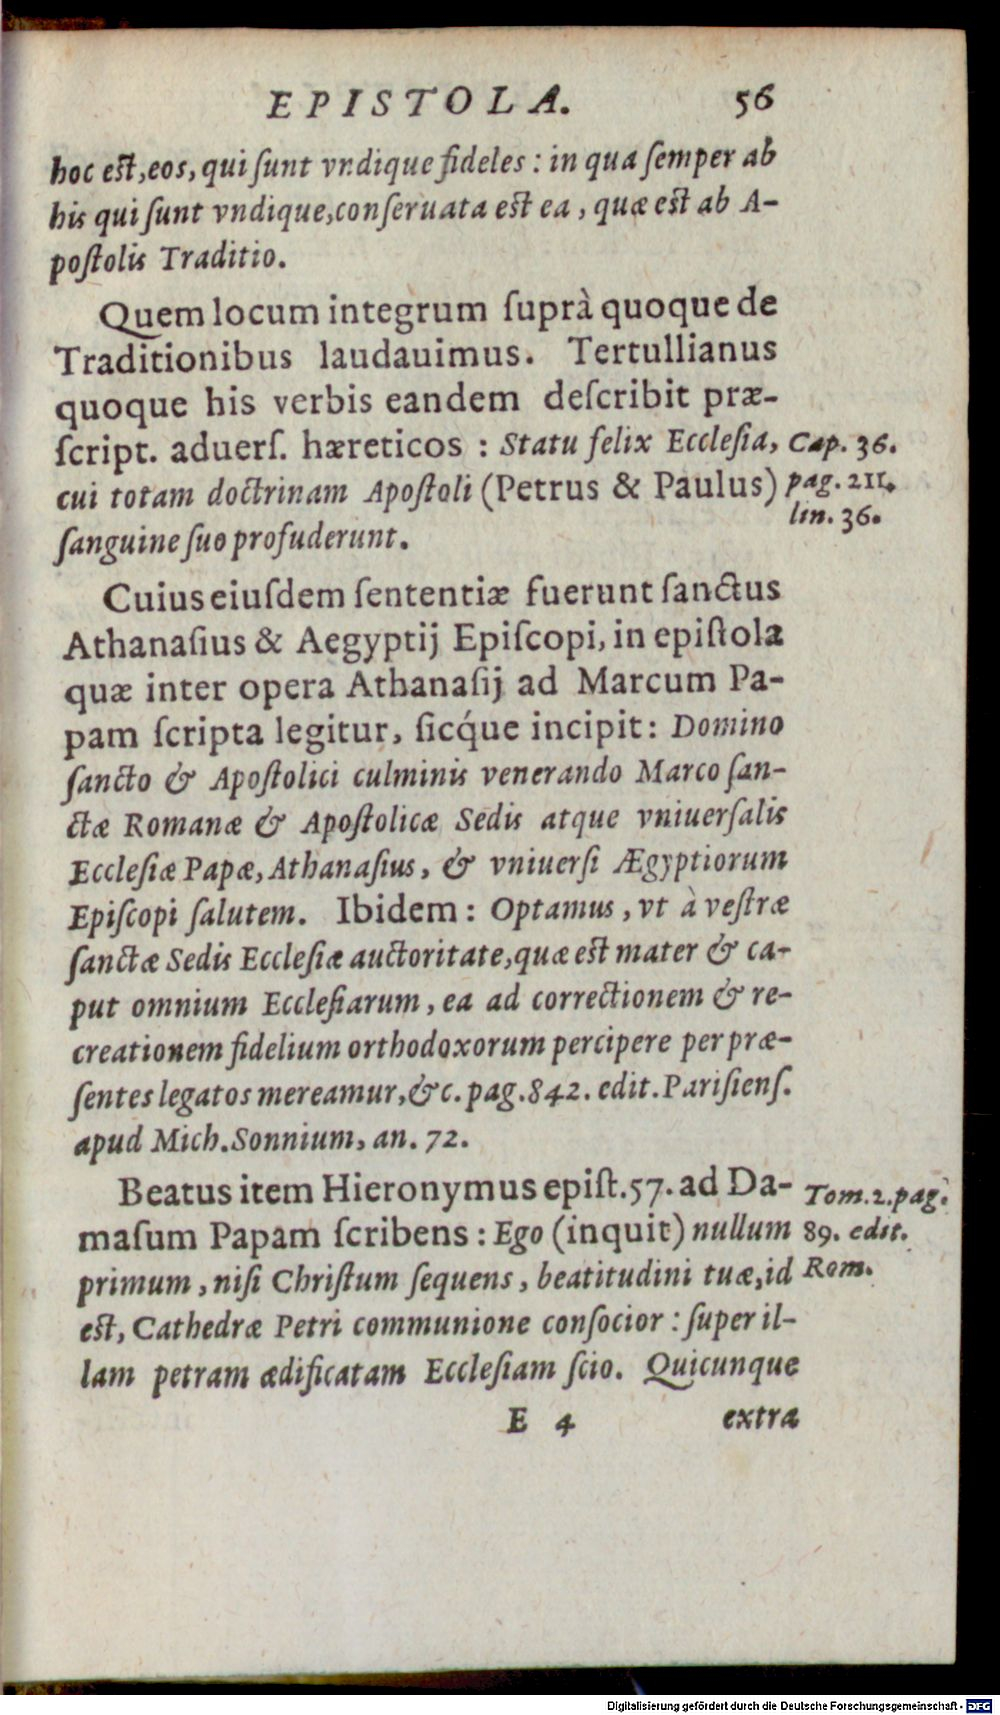 EPISTOLA. 56
hoc eſt, eos, qui ſunt vndique fideles : in qua ſemper ab
his qui ſunt vndique, conſeruata eſt ea, quæ eſt ab A-
poſtolis Traditio.
Quem locum integrum ſuprà quoque de
Traditionibus laudauimus. Tertullianus
quoque his verbis eandem deſcribit præ-
ſcript. aduerſ. hæreticos : Statu felix Eccleſia,
cui totam doctrinam Apoſtoli (Petrus & Paulus)
ſanguine ſuo profuderunt.
Cap. 36.
pag. 211.
lin. 36.
Cuius eiuſdem ſententiæ fuerunt ſanctus
Athanaſius & Aegyptij Epiſcopi, in epiſtola
quæ inter opera Athanaſij ad Marcum Pa-
pam ſcripta legitur, ſicq́ue incipit: Domino
ſancto & Apoſtolici culminis venerando Marco ſan-
ctæ Romanæ & Apoſtolicæ Sedis atque vniuerſalis
Eccleſiæ Papæ, Athanaſius, & vniuerſi Ægyptiorum
Epiſcopi ſalutem. Ibidem : Optamus, vt à veſtræ
ſanctæ Sedis Eccleſiæ auctoritate, quæ est mater & ca-
put omnium Eccleſiarum, ea ad correctionem & re-
creationem fidelium orthodoxorum percipere per præ-
ſentes legatos mereamur, &c. pag. 842. edit. Pariſienſ.
apud Mich. Sonnium, an. 72.
Beatus item Hieronymus epiſt. 57. ad Da-
maſum Papam ſcribens : Ego (inquit) nullum
primum, niſi Chriſtum ſequens, beatitudini tuæ, id
eſt, Cathedræ Petri communione conſocior : ſuper il-
lam petram ædificatam Eccleſiam ſcio. Quicunque
Tom. 2. pag.
89. edit.
Rom.
E 4 extra
Digitalisierung gefördert durch die Deutsche Forschungsgemeinschaft - DFG